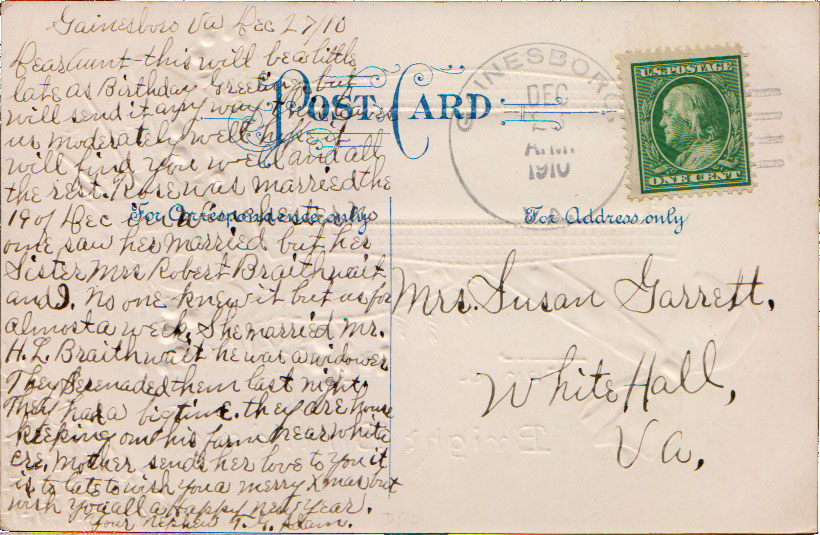 Gainesboro Va Dec 27/10
Dear Aunt - this will be a little
late as Birthday Greetings but
will send it any way this leaves
us moderately well hope it
will find you well and all
the rest. Rose was married the
19 of Dec in Winchester no
one saw her married but her
Sister Mrs Robert Braithwait
and I. No one knew it but us for
almost a week. She married Mr.
H. L. Braithwait he was a widower
They Serenaded them last night
They had a big time. they are house
keeping on his farm near White
cre. Mother sends her love to you it
is to late to wish you a merry Xmas but
wish you all a Happy New Year.
Your Nephew T. G. Adam.
POST CARD
For Correspondence only
For Address only
GAINESBORO
DEC
A.M.
1910
U.S. POSTAGE
ONE CENT
Mrs. Susan Garrett,
White Hall,
Va.
Bright